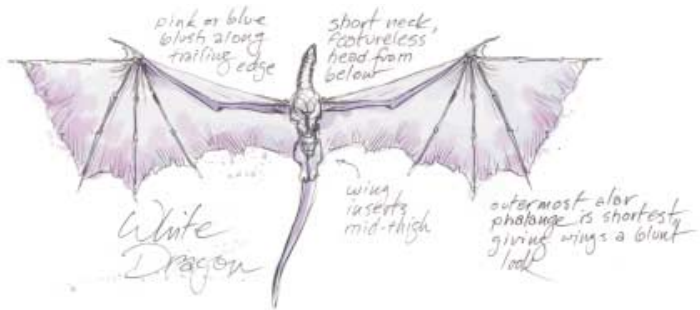 pink or blue
blush along
trailing edge
short neck,
featureless
head from
below
wing
inserts
mid-thigh
outermost alar
phalange is shortest,
giving wings a blunt
look
White
Dragon